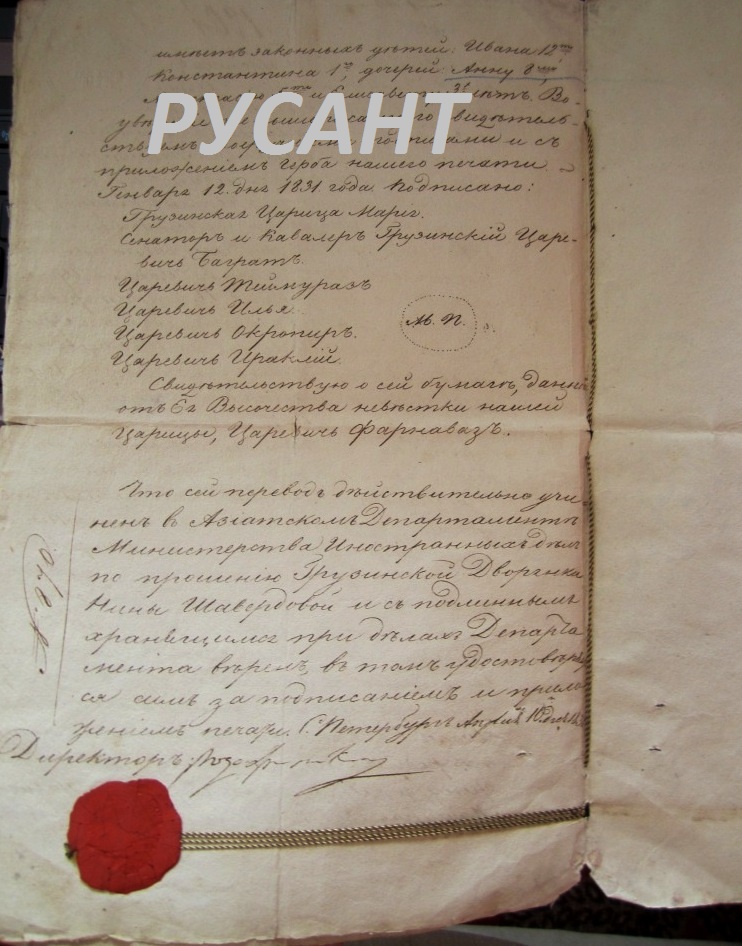 имѣетъ законныхъ дѣтей: Ивана 12ти
Константина 1го, дочерей: Анну 8ми
и Елисавету 3хъ лѣтъ. Во
РУСАНТ
свидѣтель-
и съ
приложеніемъ герба нашего печати
Генваря 12. дня 1831 года. Подписано:
Грузинская Царица Марія.
Сенаторъ и Кавалеръ Грузинскій Царе-
вичь Багратъ.
Царевичь Теймуразъ
Царевичь Илья.
Царевичь Окропиръ.
М. П.
Царевичь Ираклій.
Свидѣтельствую о сей бумагѣ, данной
отъ Ея Высочества невѣстки нашей
Царицы, Царевичь Фарнавазъ.
Что сей переводъ дѣйствительно учи
ненъ в Азіатскомъ Департаментѣ
Министерства Иностранныхъ дѣлъ
по прошенію Грузинской Дворянки
Нины Шавердовой и съ подлиннымъ
хранящимся при дѣлахъ Департа
мента вѣренъ, въ томъ удостовѣря
ся симъ за подписаніемъ и прило
женіемъ печати. С. Петербургъ Апрѣля
Директоръ